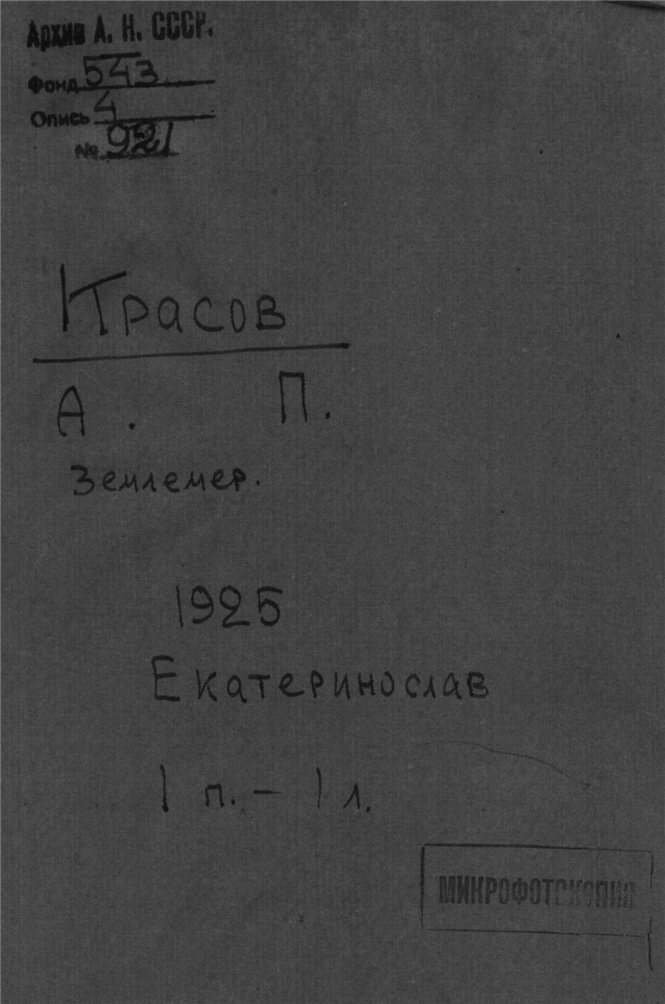 Архив А. Н. СССР.
Фонд 543
Опись 4
№ 921
Красов
А. П.
Землемер.
1925
Екатеринослав
1 п. – 1 л.
МИКРОФОТОКОПИЯ